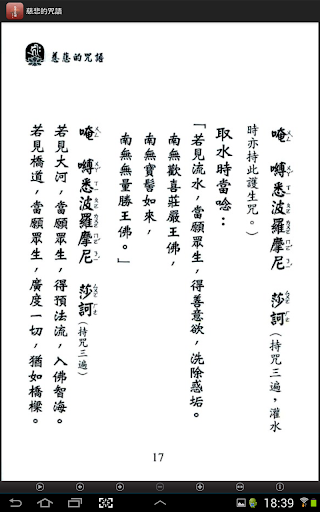 慈悲的咒語
慈悲的咒語
唵 嚩悉波羅摩尼 莎訶(持咒三遍，灌水
時亦持此護生咒。)
取水時當唸：
「若見流水，當願眾生，得善意欲，洗除惑垢。
南無歡喜莊嚴王佛，
南無寶髻如來，
南無無量勝王佛。」
唵 嚩悉波羅摩尼 莎訶(持咒三遍)
若見大河，當願眾生，得預法流，入佛智海。
若見橋道，當願眾生，廣度一切，猶如橋樑。
17
18:39